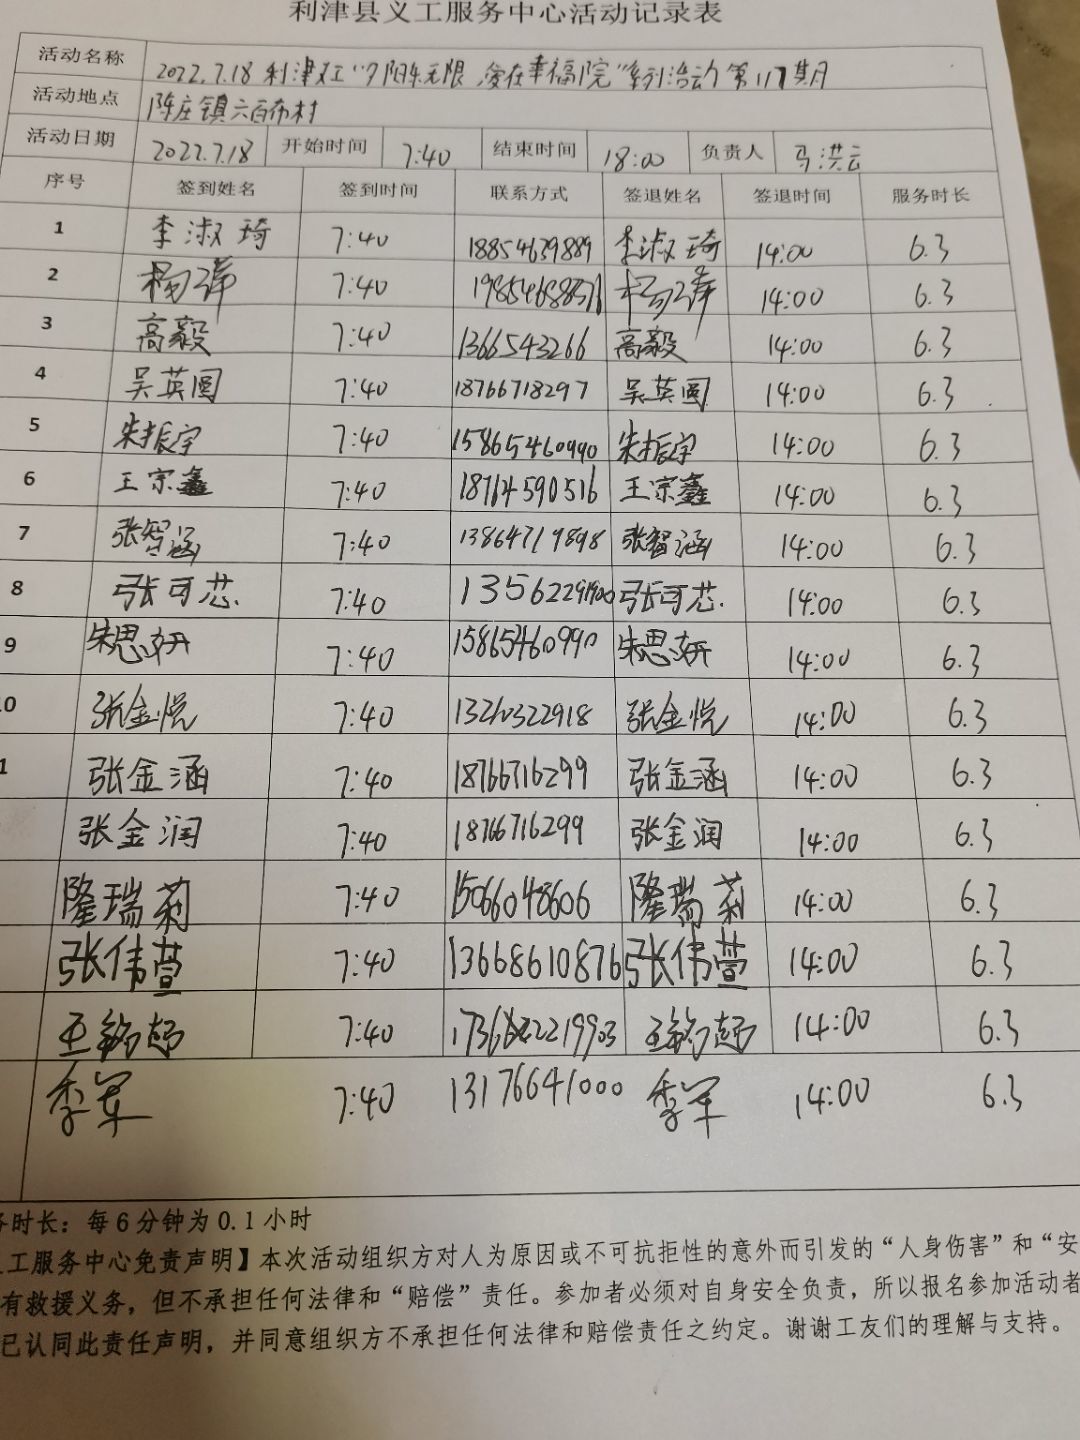 利津县义工服务中心活动记录表
活动名称 2022.7.18 利津义工“夕阳无限,爱在幸福院”系列活动第117期
活动地点 陈庄镇六百布村
活动日期 2022.7.18 开始时间 7:40 结束时间 18:00 负责人 马洪云
序号 签到姓名 签到时间 联系方式 签退姓名 签退时间 服务时长
1 李淑琦 7:40 18854639889 李淑琦 14:00 6.3
2 7:40 14:00 6.3
3 高毅 7:40 1366543266 高毅 14:00 6.3
4 吴英圆 7:40 18766718297 吴英圆 14:00 6.3
5 朱振宇 7:40 15865460990 朱振宇 14:00 6.3
6 王宗鑫 7:40 18764590516 王宗鑫 14:00 6.3
7 张智涵 7:40 13864719898 张智涵 14:00 6.3
8 张可芯. 7:40 张可芯. 14:00 6.3
9 朱思妍 7:40 15865460990 朱思妍 14:00 6.3
10 张金悦 7:40 张金悦 14:00 6.3
1 张金涵 7:40 18766716299 张金涵 14:00 6.3
张金润 7:40 18766716299 张金润 14:00 6.3
隆瑞莉 7:40 15066048606 隆瑞莉 14:00 6.3
张伟萱 7:40 13668610876 张伟萱 14:00 6.3
王铭超 7:40 王铭超 14:00 6.3
季军 7:40 13176641000 季军 14:00 6.3
务时长：每6分钟为0.1小时
工服务中心免责声明】本次活动组织方对人为原因或不可抗拒性的意外而引发的“人身伤害”和“安
有救援义务，但不承担任何法律和“赔偿”责任。参加者必须对自身安全负责，所以报名参加活动者
已认同此责任声明，并同意组织方不承担任何法律和赔偿责任之约定。谢谢工友们的理解与支持。